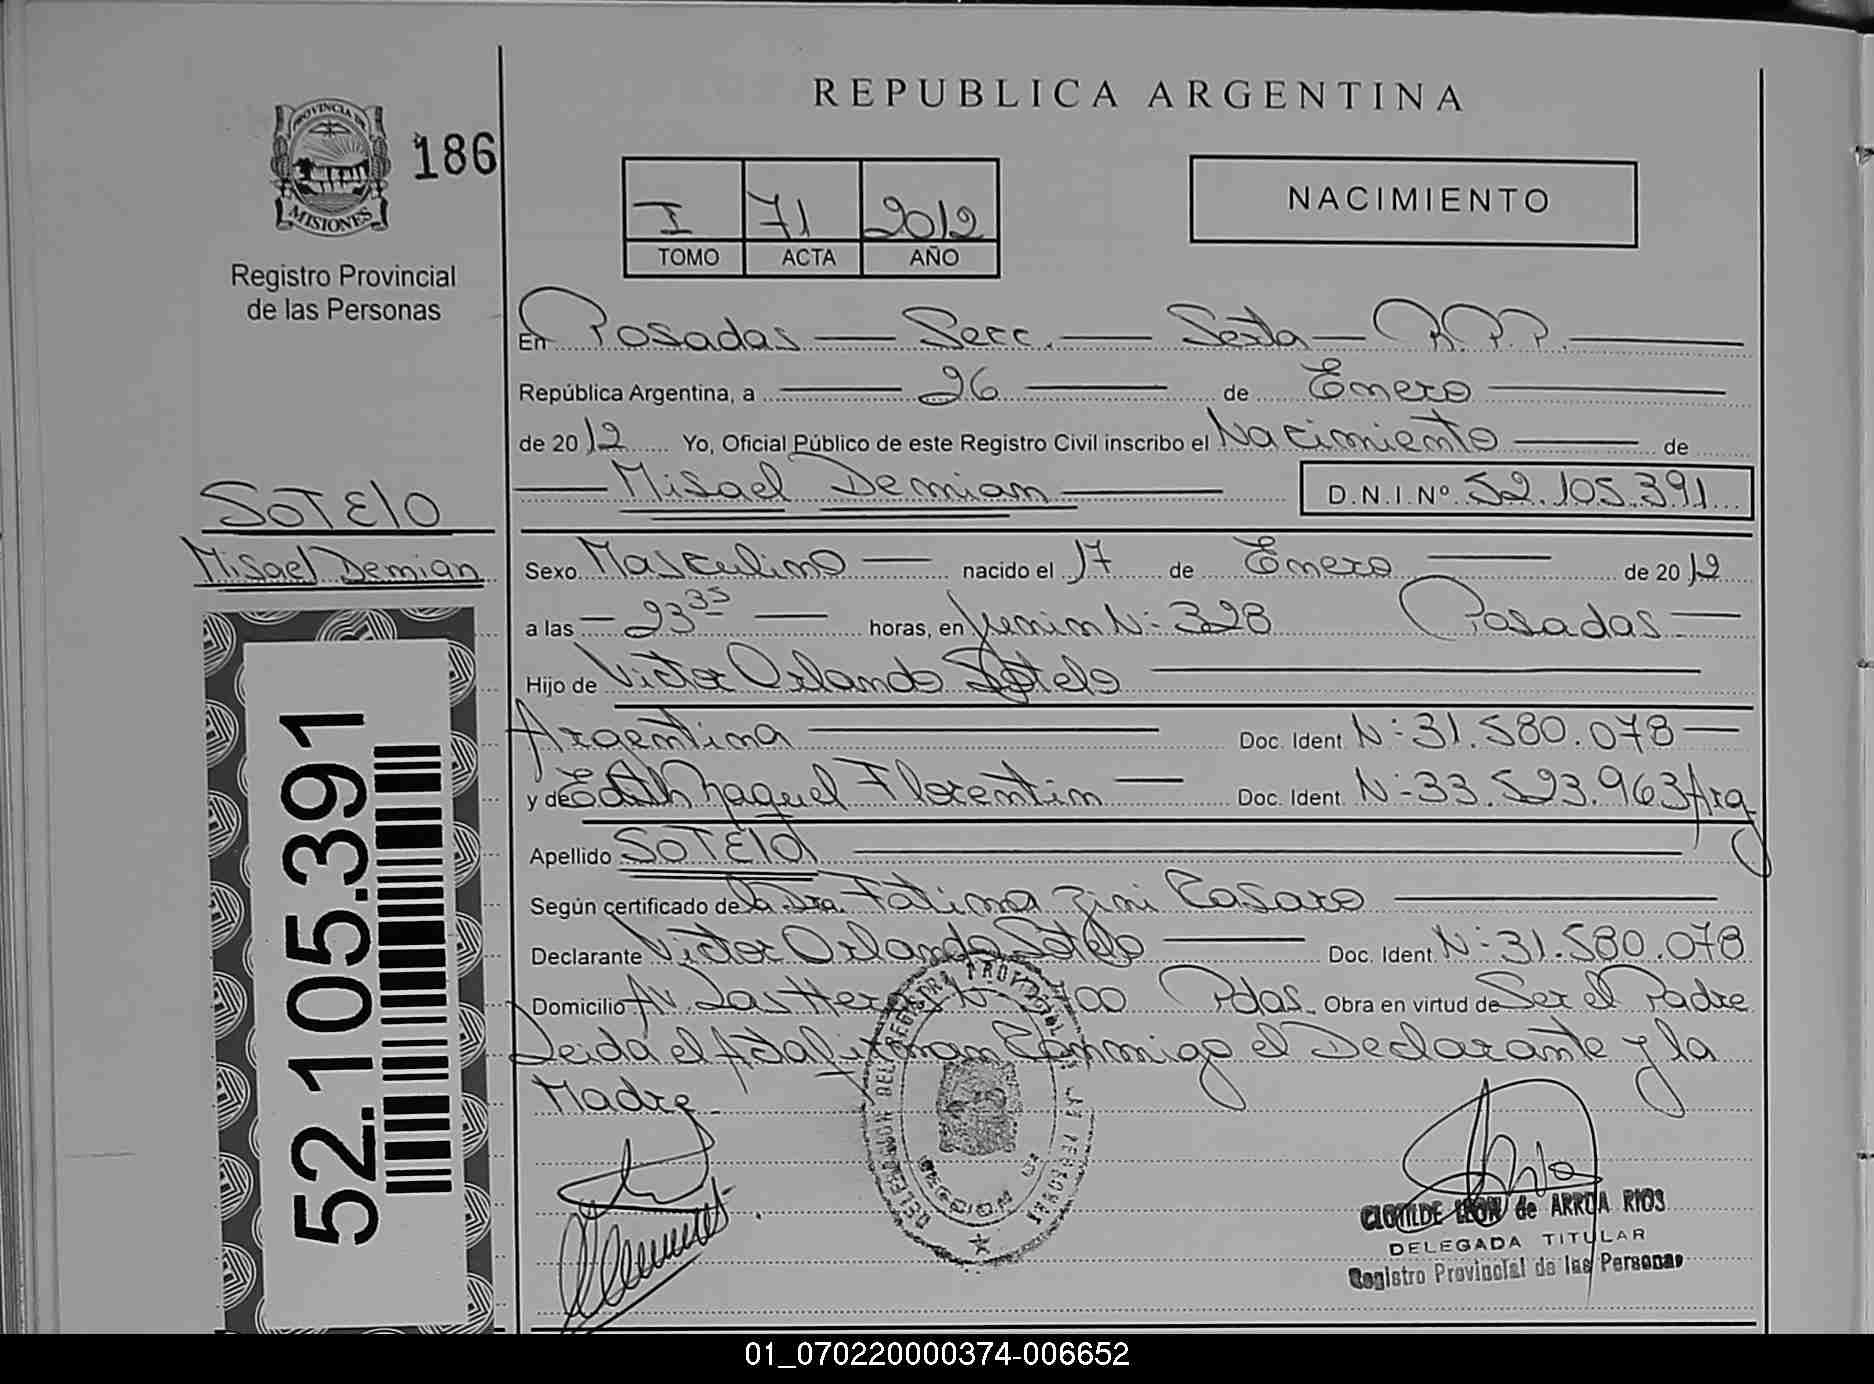 REPUBLICA ARGENTINA
PROVINCIA DE
MISIONES
186
Registro Provincial
de las Personas
I 71 2012
TOMO ACTA AÑO
NACIMIENTO
En Posadas — Secc. — Sexta — R.P.P.
República Argentina, a — 26 — de Enero
de 2012 Yo, Oficial Público de este Registro Civil inscribo el Nacimiento — de
— Misael Demian — D.N.I Nº 52.105.391
SOTElO
Misael Demian
Sexo Masculino — nacido el 17 de Enero — de 2012
a las — 23 35 — horas, en Junin N: 328 Posadas —
Hijo de Victor Orlando Sotelo
Argentina — Doc. Ident N: 31.580.078 —
y de Edith Raquel Florentin — Doc. Ident N-33.523.963 Arg
Apellido SOTElO
Según certificado de la Dra. Fatima Zini Casaro
Declarante Victor Orlando Sotelo — Doc. Ident. N: 31.580.078
Domicilio Av. Las Pdas. Obra en virtud de Ser el Padre
Leida el Acta firman Conmigo el Declarante y la
Madre
52.105.391
DELEGACION DEL REGISTRO PROVINCIAL DE LAS PERSONAS
SECCION
CLOTILDE LEON de ARRUA RIOS
DELEGADA TITULAR
Registro Provincial de las Personas
01_070220000374-006652